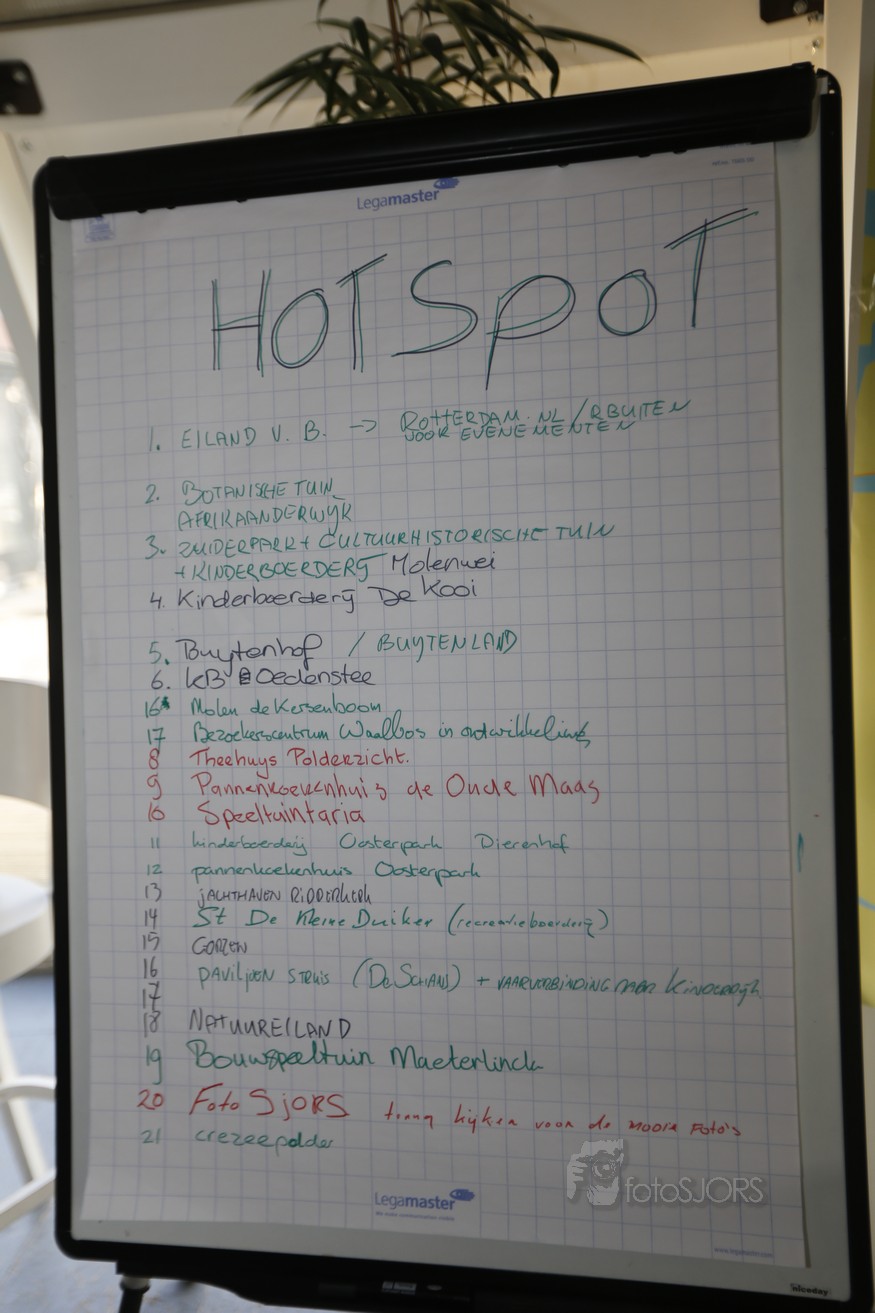 Legamaster
HOTSPOT
1. EILAND V. B. -> ROTTERDAM.NL/RBUITEN
VOOR EVENEMENTEN
2. BOTANISCHE TUIN
AFRIKAANDERWIJK
3. ZUIDERPARK + CULTUURHISTORISCHE TUIN
+ KINDERBOERDERIJ Molenwei
4. Kinderboerderij De Kooi
5. Buytenhof / BUYTENLAND
6. KB Oedenstee
16 Molen de Kersenboom
17 Bezoekerscentrum Waalbos in ontwikkeling
8 Theehuys Polderzicht.
9 Pannenkoekenhuis de Oude Maas
10 Speeltuintaria
11 kinderboerderij Oosterpark Dierenhof
12 pannenkoekenhuis Oosterpark
13 JACHTHAVEN RIDDERKERK
14 St De Kleine Duiker (recreatieboerderij)
15 GORZEN
16 PAVILJOEN STRUIS (De SCHANS) + VAARVERBINDING naar Kinderdijk
17
18 NATUUREILAND
19 Bouwspeeltuin Maeterlinck
20 Foto SJORS kijken voor de mooie Foto's
21 crezeepolder
Legamaster
fotoSJORS
www.legamaster.com
niceday